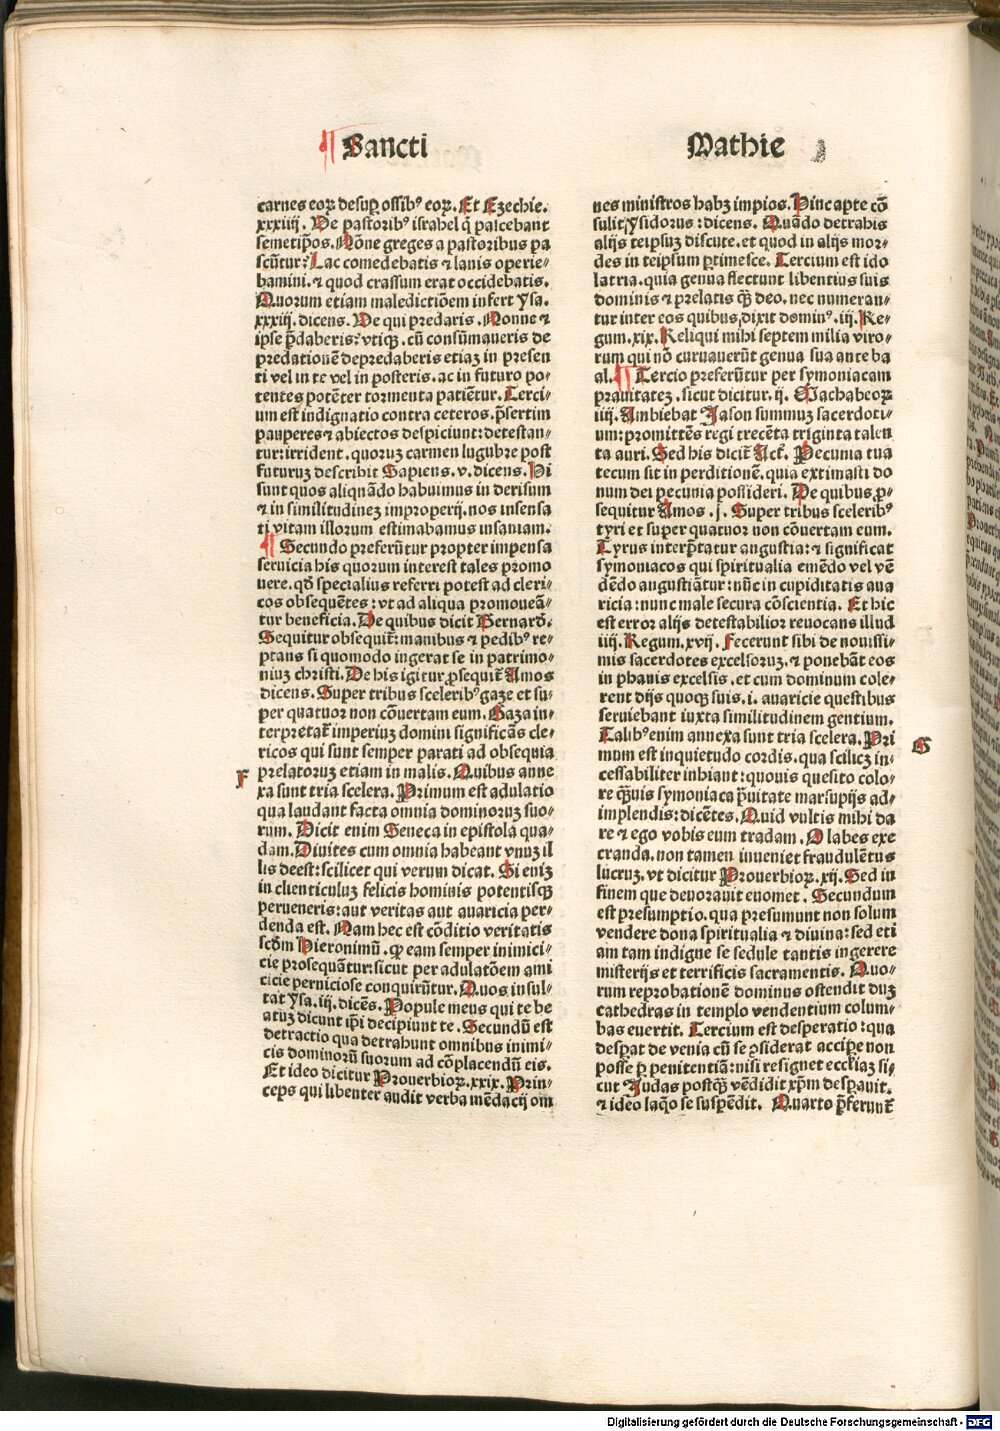 ¶ Sancti
Mathie
carnes eoꝝ desuꝑ ossibꝰ eoꝝ. Et Ezechie.
xxxiiij. Ve pastoribꝰ israhel q̇ pascebant
semetip̄os. Nōne greges a pastoribus pa
scūtur? Lac comedebatis ⁊ lanis operie⸗
bamini. ⁊ quod crassum erat occidebatis.
Quorum etiam maledictiōem infert Ysa.
xxxiij. dicens. Ve qui predaris. Nonne ⁊
ipse p̄daberis? vtiqꝫ. cū consūmaueris de
predationē depredaberis etiaꝫ in presen
ti vel in te vel in posteris. ac in futuro po⸗
tentes potēter tormenta patiētur. Terci⸗
um est indignatio contra ceteros. p̄sertim
pauperes ⁊ abiectos despiciunt: detestan⸗
tur: irrident. quoruꝫ carmen lugubre post
futuruꝫ describit Sapiens. v. dicens. Hi
sunt quos aliquādo habuimus in derisum
⁊ in similitudineꝫ improperij. nos insensa
ti vitam illorum estimabamus insaniam.
¶ Secundo preferūtur propter impensa
seruicia his quorum interest tales promo
uere. qď specialius referri potest ad cleri⸗
cos obsequētes: vt ad aliqua promoueā⸗
tur beneficia. De quibus dicit Bernarď.
Sequitur obsequit̄: manibus ⁊ pedibꝰ re⸗
ptans si quomodo ingerat se in patrimo⸗
niuꝫ christi. De his igitur ꝓsequit̄ Amos
dicens. Super tribus sceleribꝰ gaze et su⸗
per quatuor non cōuertam eum. Gaza in⸗
terpretat̄ imperiuꝫ domini significās cle⸗
ricos qui sunt semper parati ad obsequia
F prelatoruꝫ etiam in malis. Quibus anne
xa sunt tria scelera. Primum est adulatio
qua laudant facta omnia dominoruꝫ suo⸗
rum. Dicit enim Seneca in epistola qua⸗
dam. Diuites cum omnia habeant vnuꝫ il
lis deest: scilicet qui verum dicat. Si eniꝫ
in clienticuluꝫ felicis hominis potentisqꝫ
perueneris: aut veritas aut auaricia per⸗
denda est. Nam hec est cōditio veritatis
scďm Hieronimū. ꝙ eam semper inimici⸗
cie prosequātur: sicut per adulatōem ami
cicie perniciose conquirūtur. Quos insul⸗
tat Ysa. iij. dicēs. Popule meus qui te be
atuꝫ dicunt ip̄i decipiunt te. Secundū est
detractio qua detrahunt omnibus inimi⸗
cis dominorū suorum ad cōplacendū eis.
Et ideo dicitur Prouerbioꝝ. xxix. Prin⸗
ceps qui libenter audit verba mēdacij om
nes ministros habꝫ impios. Hinc aꝑte cō
sulit Ysidorus: dicens. Quādo detrahis
alijs teipsuꝫ discute. et quod in alijs mor⸗
des in teipsum ꝑtimesce. Tercium est ido
latria. quia genua flectunt libentius suis
dominis ⁊ prelatis qꝫ̄ deo. nec numeran⸗
tur inter eos quibus dixit dominꝰ. iij. Re⸗
gum. xix. Reliqui mihi septem milia viro⸗
rum qui nō curuauerūt genua sua ante ba
al. ¶ Tercio preferūtur per symoniacam
prauitateꝫ. sicut dicitur. ij. Machabeoꝝ
iiij. Ambiebat Jason summuꝫ sacerdoti⸗
um: promittēs regi trecēta triginta talen
ta auri. Sed his dicit̄ Act̄. Pecunia tua
tecum sit in perditionē. quia extimasti do
num dei pecunia possideri. De quibus ꝓ⸗
sequitur Amos. j. Super tribus sceleribꝰ
tyri et super quatuor non cōuertam eum.
Tyrus interp̄tatur angustia: ⁊ significat
symoniacos qui spiritualia emēdo vel vē
dēdo angustiātur: nūc in cupiditatis aua
ricia: nunc male secura cōscientia. Et hic
est error alijs detestabilior reuocans illud
iiij. Regum. xvij. Fecerunt sibi de nouissi⸗
mis sacerdotes excelsoruꝫ. ⁊ ponebāt eos
in phanis excelsis. et cum dominum cole⸗
rent dijs quoqꝫ suis. i. auaricie questibus
seruiebant iuxta similitudinem gentium.
Talibꝰ enim annexa sunt tria scelera. Pri G
mum est inquietudo cordis. qua scilicꝫ in⸗
cessabiliter inhiant: quouis quesito colo⸗
re qꝫ̄uis symoniaca p̄uitate marsupijs ad⸗
implendis: dicētes. Quid vultis mihi da
re ⁊ ego vobis eum tradam. O labes exe
cranda. non tamen inueniet fraudulētus
lucruꝫ. vt dicitur Prouerbioꝝ. xij. Sed in
finem que deuorauit euomet. Secundum
est presumptio. qua presumunt non solum
vendere dona spiritualia ⁊ diuina: sed eti
am tam indigne se sedule tantis ingerere
misterijs et terrificis sacramentis. Quo⸗
rum reprobationē dominus ostendit duꝫ
cathedras in templo vendentium colum⸗
bas euertit. Tercium est desperatio: qua
desꝑat de venia cū se ꝯsiderat acciꝑe non
posse ꝑ penitentiā: nisi resignet eccl̄iaꝫ si⸗
cut Judas postqꝫ̄ vēdidit xp̄m desꝑauit.
⁊ ideo laq̇o se suspēdit. Quarto p̄ferunt̄
Digitalisierung gefördert durch die Deutsche Forschungsgemeinschaft - DFG